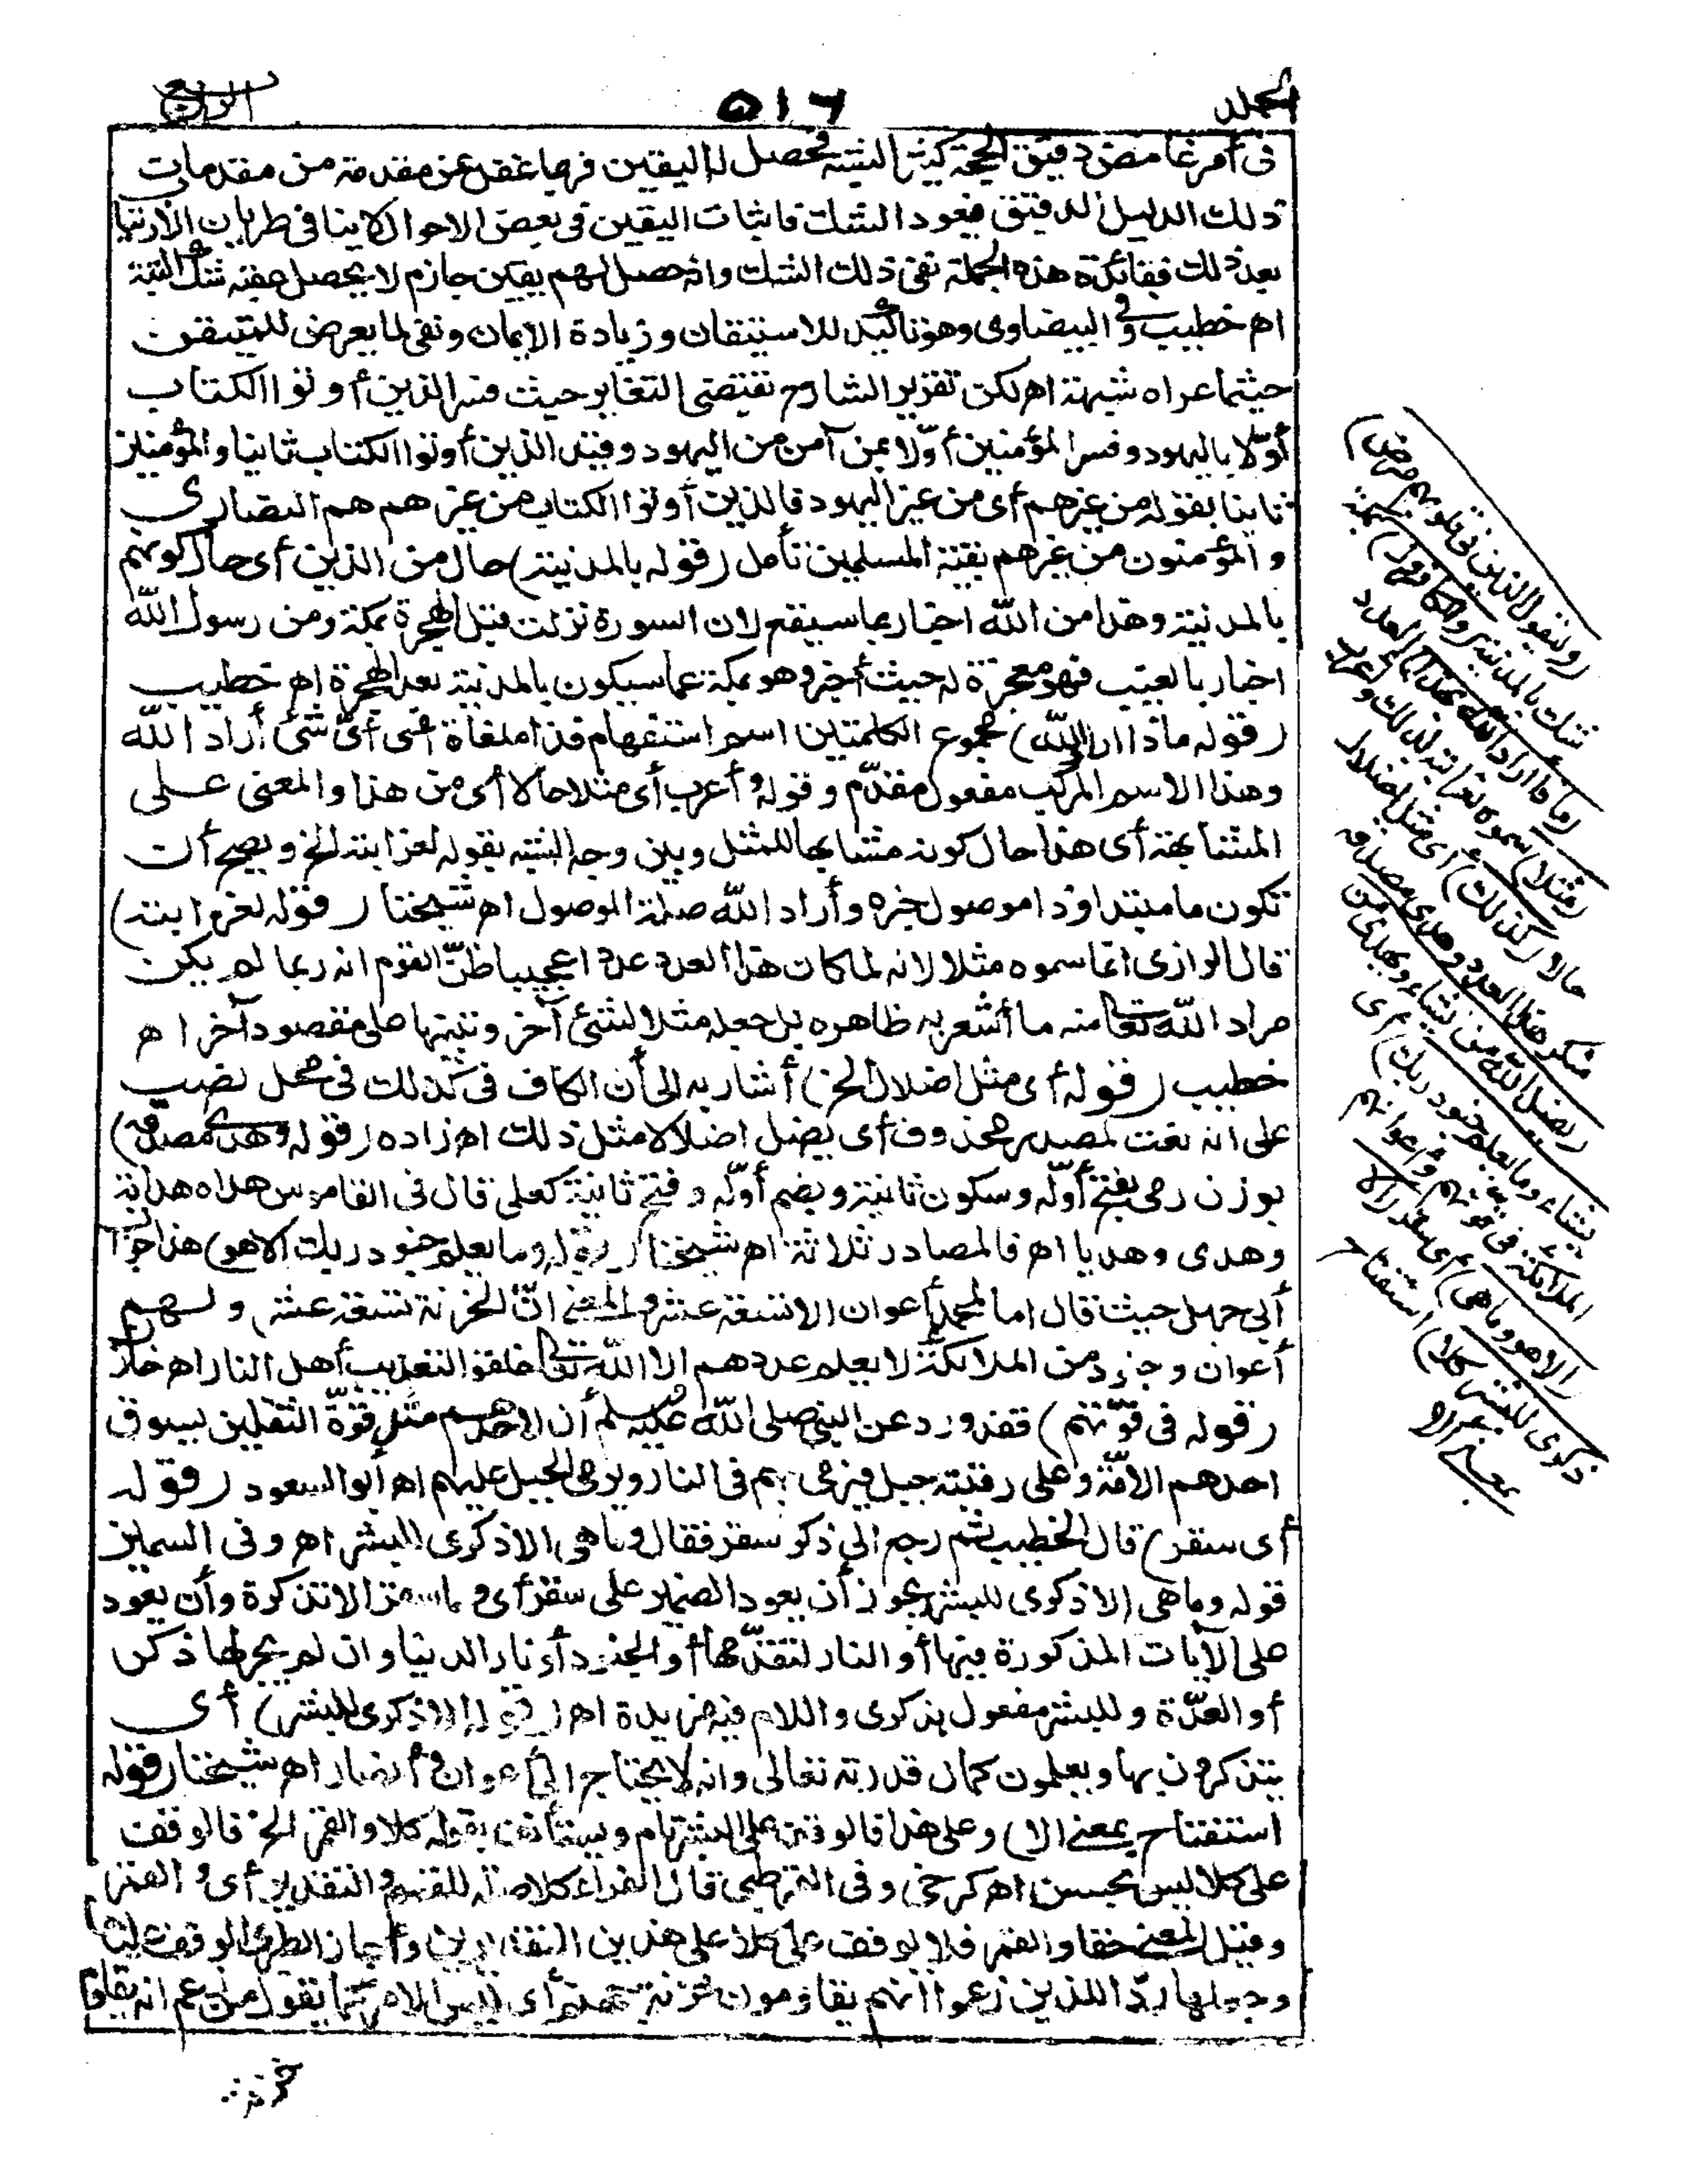 المجلد
٥١٦
الرابع
فى أمر غامض دقيق الحجة كثير الشبه فحصل له اليقين فربما غفل عن مقدمة من مقدمات
ذلك الدليل الدقيق فيعود الشك فاثبات اليقين فى بعض الاحوال لاينافى طريان الارتياب
بعد ذلك ففائدة هذه الجملة نفى ذلك الشك وانه حصل لهم يقين جازم لا يحصل عقبه شك البتة
اه خطيب وفى البيضاوى وهو تأكيد للاستيقان وزيادة الايمان ونفى لما يعرض للمتيقن
حيثما عراه شبهة اه لكن تقرير الشارح يقتضى التغاير حيث فسر الذين أوتوا الكتاب
أولا باليهود وفسر المؤمنين أولا بمن آمن من اليهود وقيد الذين أوتوا الكتاب ثانيا والمؤمنين
ثانيا بقوله من غيرهم أى من غير اليهود فالذين أوتوا الكتاب من غيرهم هم النصارى
والمؤمنون من غيرهم بقية المسلمين تأمل (قوله بالمدينة) حال من الذين أى حال كونهم
بالمدينة وهذا من الله اخبار بما سيقع لان السورة نزلت قبل الهجرة بمكة ومن رسول الله
اخبار بالغيب فهو معجزة له حيث أخبر وهو بمكة عما سيكون بالمدينة بعد الهجرة اه خطيب
(قوله ماذا اراد الله) مجموع الكلمتين اسم استفهام فذا ملغاة اعنى أى شئ أراد الله
وهذا الاسم المركب مفعول مقدّم وقوله وأعرب أى مثلا حالا أى من هذا والمعنى على
المشابهة أى هذا حال كونه مشابها للمثل وبين وجه الشبه بقوله لغرابته الخ ويصح أن
تكون ما مبتدا وذا موصول خبره وأراد الله صلة الموصول اه شيخنا (قوله لغرابته)
قال الرازى انما سموه مثلا لانه لما كان هذا العدد عددا عجيبا ظنّ القوم انه ربما لم يكن
مراد الله تعا منه ما أشعر به ظاهره بل جعله مثلا لشئ آخر وتنبيها على مقصود آخر اه
خطيب (قوله أى مثل اضلال الخ) أشار به الى أن الكاف فى كذلك فى محل نصب
على انه نعت لمصدر محذوف أى يضل اضلالا مثل ذلك اه زاده (قوله وهدى مصدقه)
بوزن رمى بفتح أوّله وسكون ثانية وبضم أوّله وفتح ثانية كعلى قال فى القاموس هداه هداية
وهدى وهديا اه فالمصادر ثلاثة اه شيخنا (قوله وما يعلم جنود ربك الا هو) هذا جواب
أبى جهل حيث قال اما لمحمد أعوان الا تسعة عشر والمعنى انّ الخزنة تسعة عشر ولهم
أعوان وجنود من الملائكة لا يعلم عددهم الا الله تعا خلقوا لتعذيب أهل النار اه خازن
(قوله فى قوّتهم) فقد ورد عن النبى صلى الله عليه وسلم أن لاحدهم مثل قوّة الثقلين يسوق
احدهم الامّة وعلى رقبته جبل فيرمى بهم فى النار ويرمى الجبل عليهم اه أبو السعود (قوله
أى سقر) قال الخطيب ثم رجع الى ذكر سقر فقال وما هى الا ذكرى للبشر اه وفى السمين
قوله وما هى الا ذكرى للبشر يجوز أن يعود الضمير على سقر أى وما سقر الا تذكرة وأن يعود
على الآيات المذكورة فيها أو النار لتقدّمها أو الجنود أو نار الدنيا وان لم يجر لها ذكر
أو العدّة وللبشر مفعول بذكرى واللام فيه مزيدة اه (قوله الا ذكرى للبشر) أى
يتذكرون بها ويعلمون كمال قدرته تعالى وانه لا يحتاج الى أعوان وأنصار اه شيخنا (قوله
استفتاح بمعنى الا) وعلى هذا فالوقف على البشر تام ويستأنف بقوله كلا والقمر الخ فالوقف
على كلا ليس بحسن اه كرخى وفى القرطبى قال الفراء كلا صلة للقسم والتقدير أى والقمر
وقيل المعنى حقا والقمر فلا يوقف على كلا على هذين التقديرين وأجاز الطبرى الوقف عليها
وجعلها ردّا للذين زعموا انهم يقاومون خزنة جهنم أى ليس الامر كما يقول من زعم انه يقاوم
خزنة
(وليقول الذين فى قلوبهم مرض)
شك بالمدينة (والكافرون) بمكة
(ماذا اراد الله بهذا) العدد
(مثلا) سموه لغرابته بذلك وأعرب
حالا (كذلك) أى مثل اضلال
منكر هذا العدد وهدى مصدقه
(يضل الله من يشاء ويهدى من
يشاء وما يعلم جنود ربك) أى
الملائكة فى قوتهم وأعوانهم
(الا هو وما هى) أى سقر (الا
ذكرى للبشر كلا) استفتاح
بمعنى الا